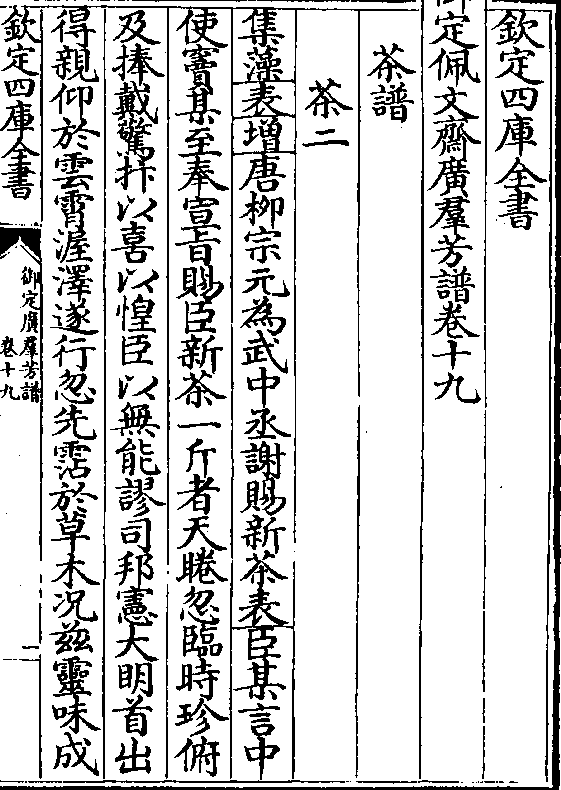 欽定四庫全書
御定佩文齋廣羣芳譜卷十九
茶譜
茶二
集藻表增唐柳宗元為武中丞謝賜新茶表臣某言中
使竇某至奉宣旨賜臣新茶一斤者天睠忽臨時珍俯
及捧戴驚抃以喜以惶臣以無能謬司邦憲大明首出
得親仰於雲霄渥澤遂行忽先霑於草木况兹靈味成
欽定四庫全書
御定廣羣芳譜
卷十九
一